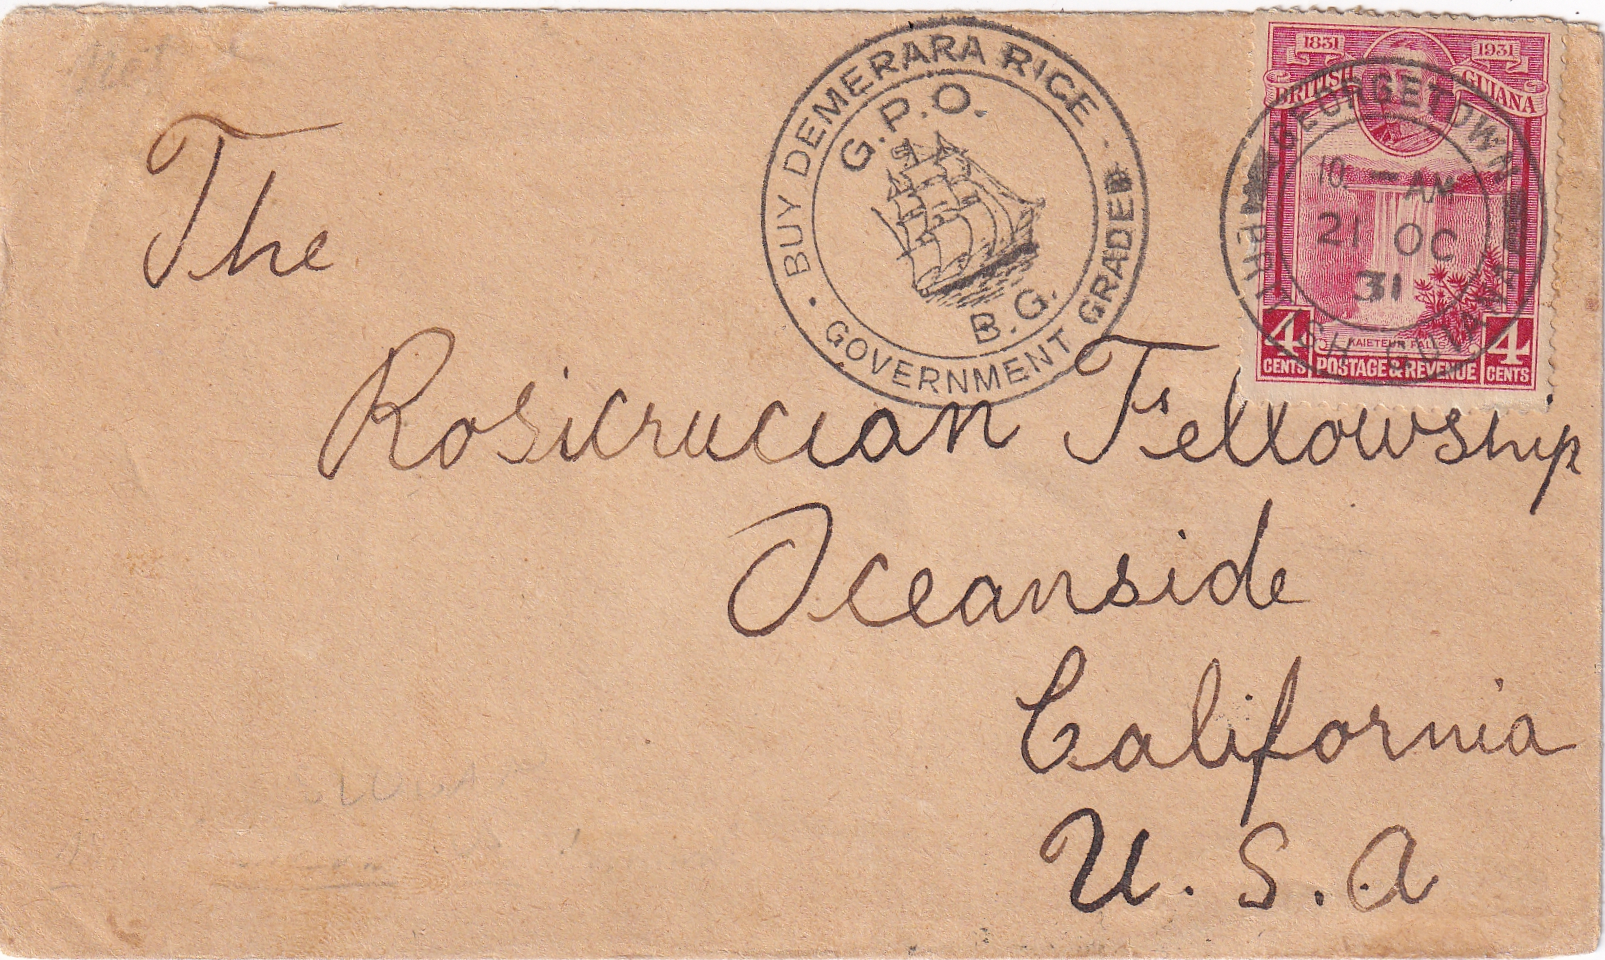 BUY DEMERARA RICE
G.P.O.
B.G.
GOVERNMENT GRADED
1831 1931
BRITISH GUIANA
GEORGETOWN
10 - AM
21 OC
31
BRITISH GUIANA
KAIETEUR FALL
4 4
CENTS POSTAGE & REVENUE CENTS
The
Rosicrucian Fellowship
Oceanside
California
U.S.A